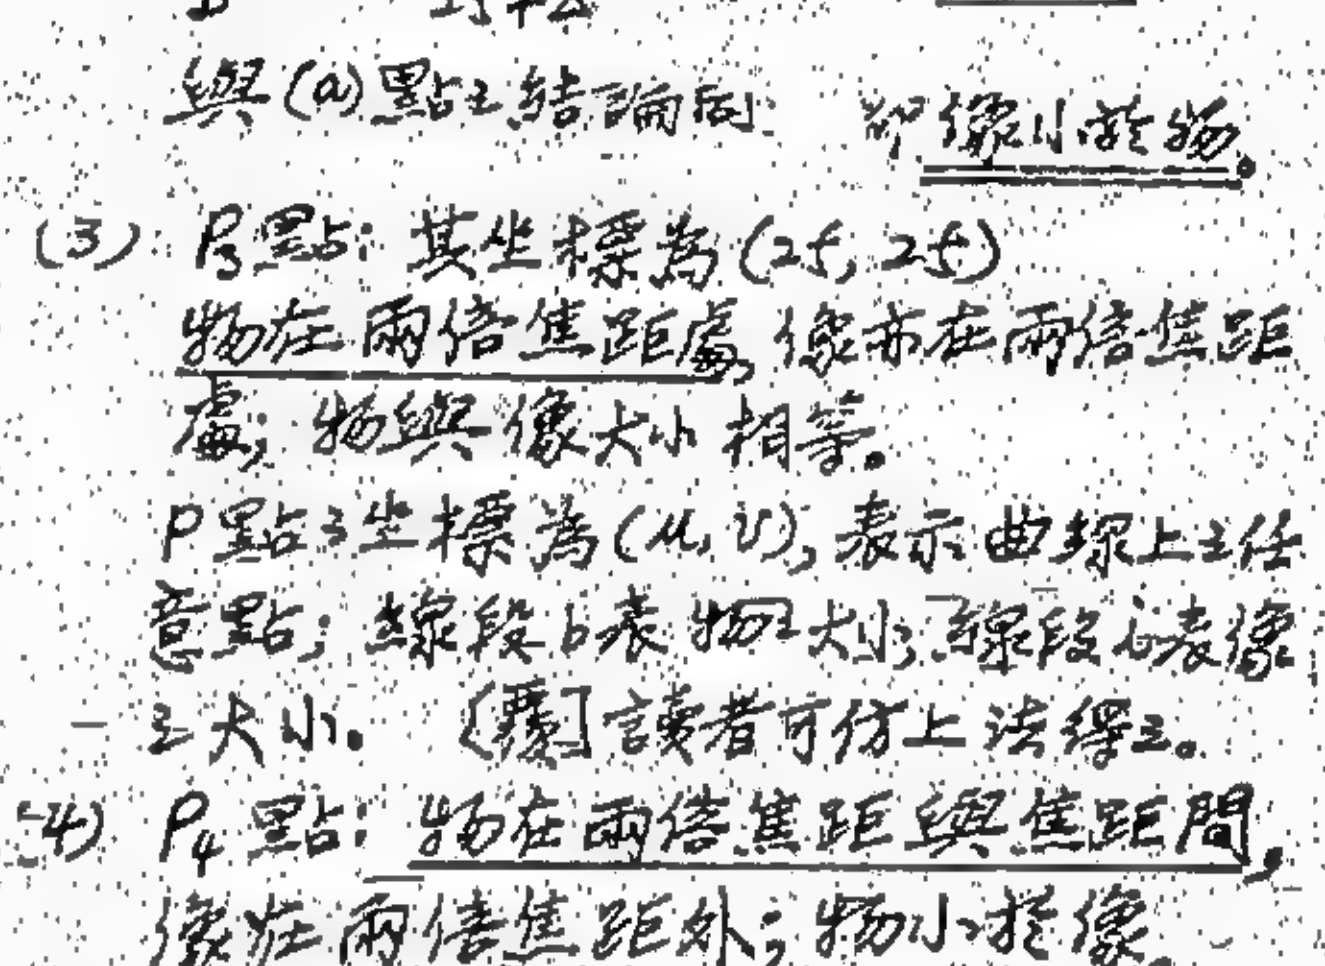 與(a)點之結論同 即像小於物。
(3) P₃點: 其坐標為(2f, 2f)
物在兩倍焦距處, 像亦在兩倍焦距
處; 物與像大小相等。
P點之坐標為(u, v), 表示曲線上之任
意點; 線段b表物之大小; 線段i表像
之大小。 [覆] 讀者可仿上法得之。
(4) P₄點: 物在兩倍焦距與焦距間,
像在兩倍焦距外; 物小於像